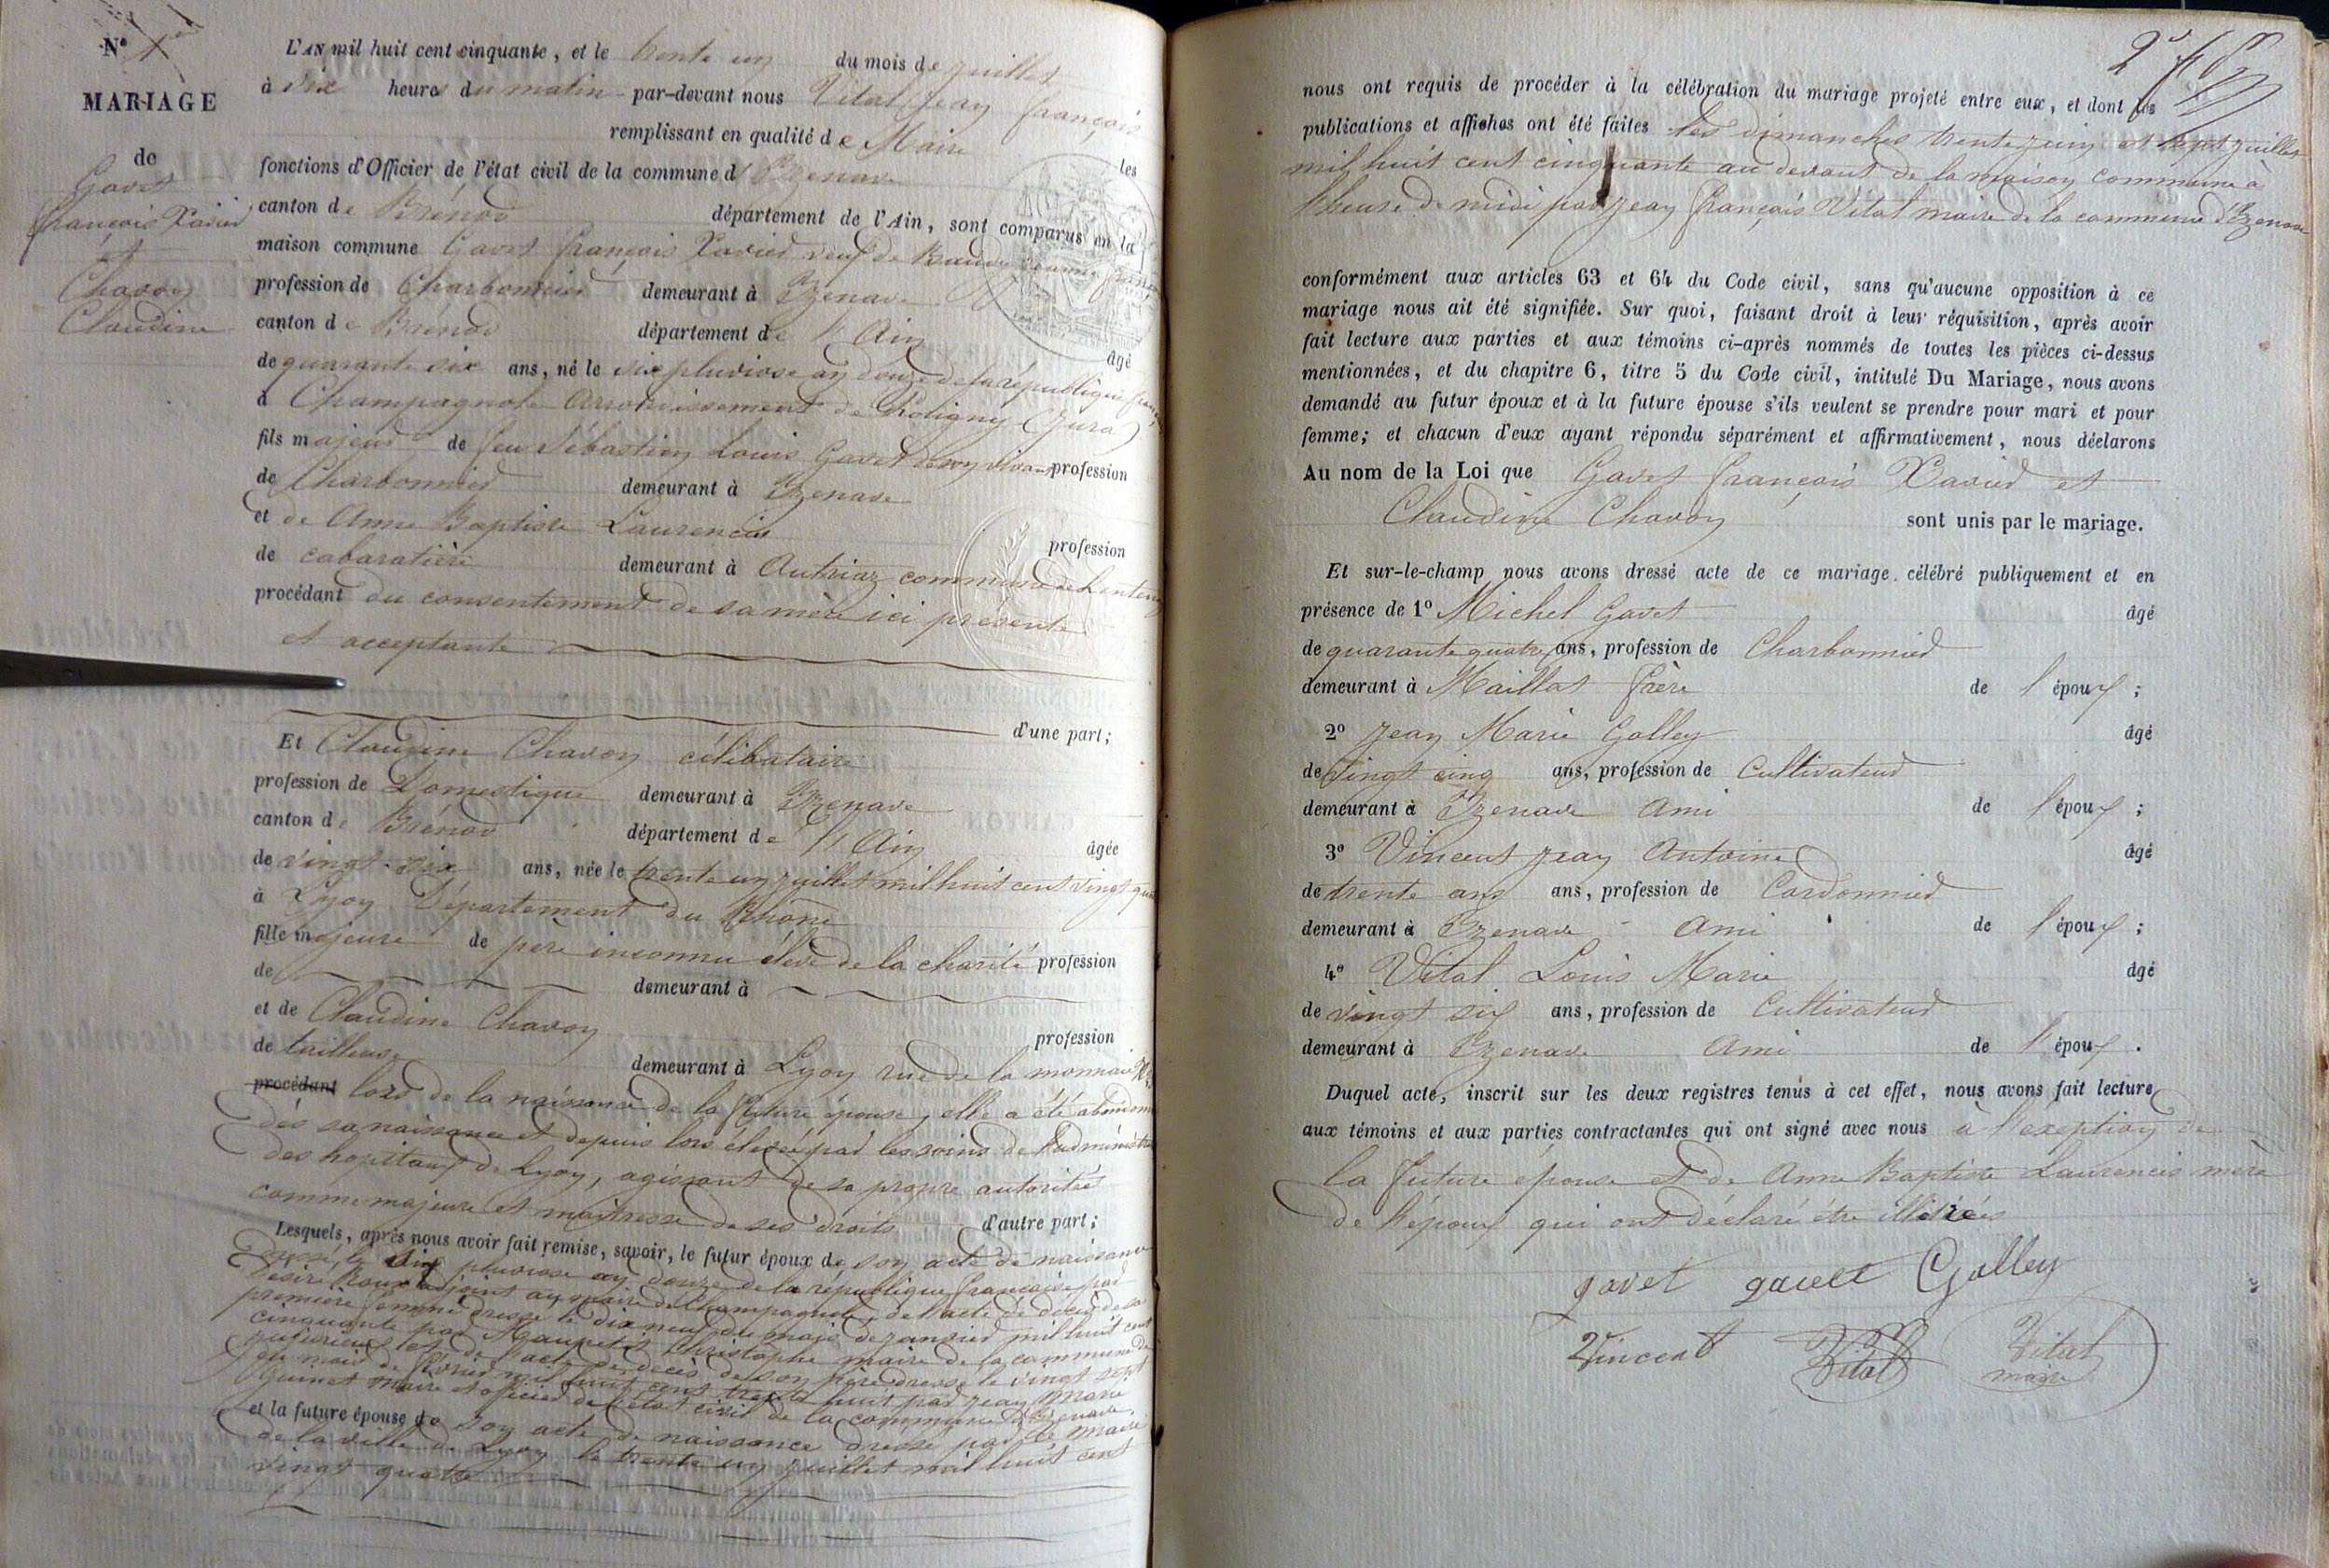 N° 1
MARIAGE
de
Gavet
françois Xavier
et
Chavoy
Claudine
L'AN mil huit cent cinquante, et le trente un du mois de juillet
à dix heures du matin par-devant nous Vital jean françois
remplissant en qualité de Maire les
fonctions d'Officier de l'état civil de la commune d'Izenave
canton de Brénod département de l'Ain, sont comparus en la
maison commune Gavet françois Xavier veuf de
profession de Charbonnier demeurant à Izenave
canton de Brénod département de l'Ain âgé
de quarante six ans, né le six pluviose an douze de la république
à Champagnole arrondissement de Poligny (Jura)
fils majeur de feu Sébastien Louis Gavet de son vivant profession
de Charbonnier demeurant à Izenave
et de Anne Baptiste Laurencin profession
de cabaratière demeurant à Autriaz commune de
procédant du consentement de sa mère ici présente
et acceptante
d'une part;
Et Claudine Chavoy célibataire
profession de Domestique demeurant à Izenave
canton de Brénod département de l'Ain âgée
de vingt-six ans, née le trente un juillet mil huit cent vingt
à Lyon Département du Rhône
fille majeure de père inconnu élève de la charité profession
de demeurant à
et de Claudine Chavoy profession
de tailleuse demeurant à Lyon rue de la monnaie
procédant lors de la naissance de la future épouse, elle a été
dès sa naissance et depuis lors élevée par les soins de
des hopitaux de Lyon, agissant de sa propre autorité
comme majeure et maitresse de ses droits d'autre part;
Lesquels, après nous avoir fait remise, savoir, le futur époux de son acte de naissance
dressé le six pluviose an douze de la république française par
Désiré Roux adjoint au maire de Champagnole, de l'acte de décès de sa
première femme dressé le dix neuf du mois de janvier mil huit cent
cinquante par Christophe maire de la commune de
de l'acte de décès de son père dressé le vingt sept
du mois de février mil huit cent trente huit par Jean Marie
Guinet maire et officier de l'état civil de la commune d'Izenave,
et la future épouse de son acte de naissance dressé par le maire
de la ville de Lyon le trente un juillet mil huit cent
vingt quatre
nous ont requis de procéder à la célébration du mariage projeté entre eux, et dont les
publications et affiches ont été faites les dimanches trente juin et sept juillet
mil huit cent cinquante au devant de la maison commune à
l'heure de midi par jean françois Vital maire de la commune d'Izenave
conformément aux articles 63 et 64 du Code civil, sans qu'aucune opposition à ce
mariage nous ait été signifiée. Sur quoi, faisant droit à leur réquisition, après avoir
fait lecture aux parties et aux témoins ci-après nommés de toutes les pièces ci-dessus
mentionnées, et du chapitre 6, titre 5 du Code civil, intitulé Du Mariage, nous avons
demandé au futur époux et à la future épouse s'ils veulent se prendre pour mari et pour
femme; et chacun d'eux ayant répondu séparément et affirmativement, nous déclarons
Au nom de la Loi que Gavet françois Xavier et
Claudine Chavoy sont unis par le mariage.
Et sur-le-champ nous avons dressé acte de ce mariage célébré publiquement et en
présence de 1° Michel Gavet âgé
de quarante quatre ans, profession de Charbonnier
demeurant à Maillat frère de l'époux;
2° Jean Marie Golley âgé
de vingt cinq ans, profession de Cultivateur
demeurant à Izenave Ami de l'époux;
3° Vincent jean Antoine âgé
de trente ans ans, profession de Cordonnier
demeurant à Izenave Ami de l'époux;
4° Vital Louis Marie âgé
de vingt six ans, profession de Cultivateur
demeurant à Izenave Ami de l'époux.
Duquel acte, inscrit sur les deux registres tenus à cet effet, nous avons fait lecture
aux témoins et aux parties contractantes qui ont signé avec nous à l'exeption de
la future épouse et de Anne Baptiste Laurencin mère
de l'époux qui ont déclaré être illétrées
gavet gavet Golley
Vincent Vital Vital
maire